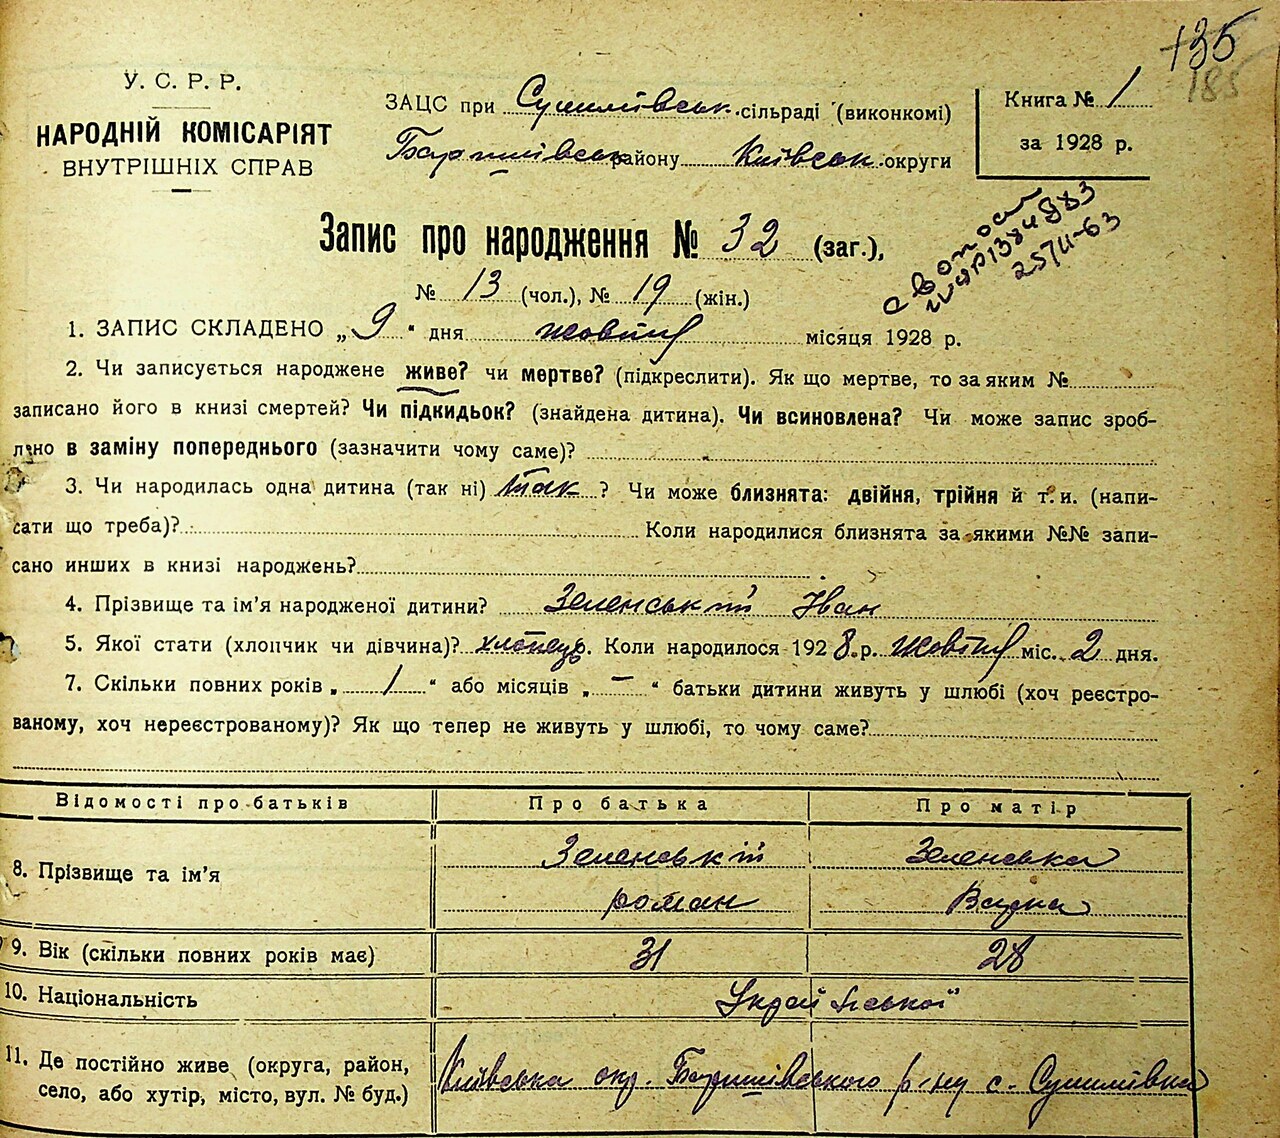 135
185
У. С. Р. Р.
НАРОДНІЙ КОМІСАРІЯТ
ВНУТРІШНІХ СПРАВ
ЗАЦС при Сулимівськ. сільраді (виконкомі)
Баришівськ району Київськ. округи
Книга № 1
за 1928 р.
Запис про народження № 32 (заг.),
№ 13 (чол.), № 19 (жін.)
25/II-63
1. ЗАПИС СКЛАДЕНО „ 9 “ дня жовтня місяця 1928 р.
2. Чи записується народжене живе? чи мертве? (підкреслити). Як що мертве, то за яким №
записано його в книзі смертей? Чи підкидьок? (знайдена дитина). Чи всиновлена? Чи може запис зроб-
лено в заміну попереднього (зазначити чому саме)?
3. Чи народилась одна дитина (так ні) так ? Чи може близнята: двійня, трійня й т. и. (напи-
сати що треба)? Коли народилися близнята за якими №№ запи-
сано инших в книзі народжень?
4. Прізвище та ім’я народженої дитини? Зеленський Іван
5. Якої стати (хлопчик чи дівчина)? хлопець. Коли народилося 1928 р. жовтня міс. 2 дня.
7. Скільки повних років „ 1 “ або місяців „ – “ батьки дитини живуть у шлюбі (хоч реєстро-
ваному, хоч нереєстрованому)? Як що тепер не живуть у шлюбі, то чому саме?
Відомості про батьків Про батька Про матір
8. Прізвище та ім’я Зеленський Зеленська
роман
9. Вік (скільки повних років має) 31 28
10. Національність Української
11. Де постійно живе (округа, район,
село, або хутір, місто, вул. № буд.)
Київська окр. Баришівського р-ну с. Сулимівка